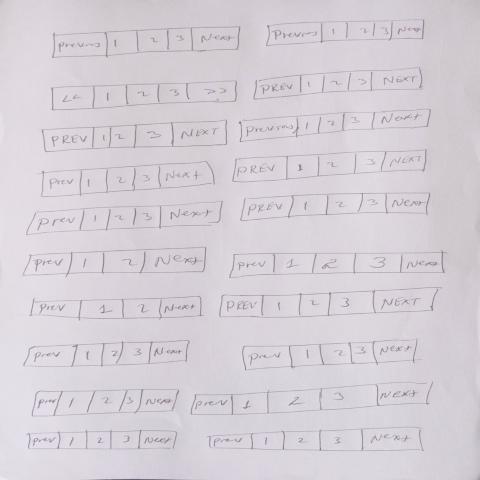 Previous 1 2 3 Next
Previous 1 2 3 Next
<< 1 2 3 >>
PREV 1 2 3 NEXT
PREV 1 2 3 NEXT
Previous 1 2 3 Next
Prev 1 2 3 Next
PREV 1 2 3 NEXT
Prev 1 2 3 Next
PREV 1 2 3 Next
prev 1 2 Next
prev 1 2 3 Next
prev 1 2 Next
PREV 1 2 3 NEXT
prev 1 2 3 Next
prev 1 2 3 Next
prev 1 2 3 Next
prev 1 2 3 NEXT
prev 1 2 3 Next
prev 1 2 3 Next